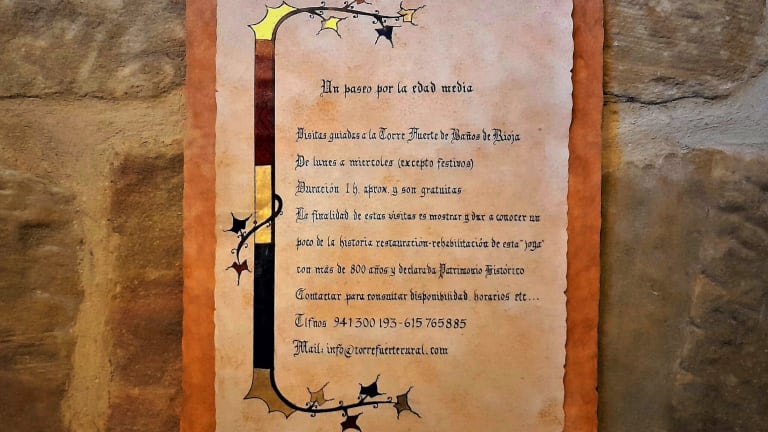 Un paseo por la edad media
Visitas guiadas a la Torre Fuerte de Baños de Rioja
De lunes a miercoles (excepto festivos)
Duración 1 h. aprox. y son gratuitas
La finalidad de estas visitas es mostrar y dar a conocer un
poco de la historia restauración-rehabilitación de esta "joya"
con más de 800 años y declarada Patrimonio Histórico
Contactar para consultar disponibilidad, horarios etc...
Tlfnos 941 300 193-615 765 885
Mail: info@torrefuerterural.com